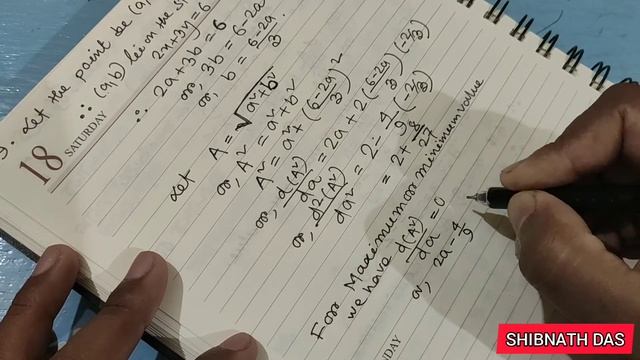 5. Let the point be (a,
∴ (a,b) lie on the st
2x+3y=6
∴ 2a+3b=6
or, 3b=6-2a
or, b= (6-2a)/3
18 SATURDAY
Let A = √(a²+b²)
or, A² = a²+b²
A² = a²+((6-2a)/3)²
or, d(A²)/da = 2a+2((6-2a)/3)(-2/3)
or, d2(A²)/da² = 2-4/9(-2/3)
= 2+8/27
For Maximum or minimum value
we have d(A²)/da = 0
or, 2a-4/9
DAY
SHIBNATH DAS